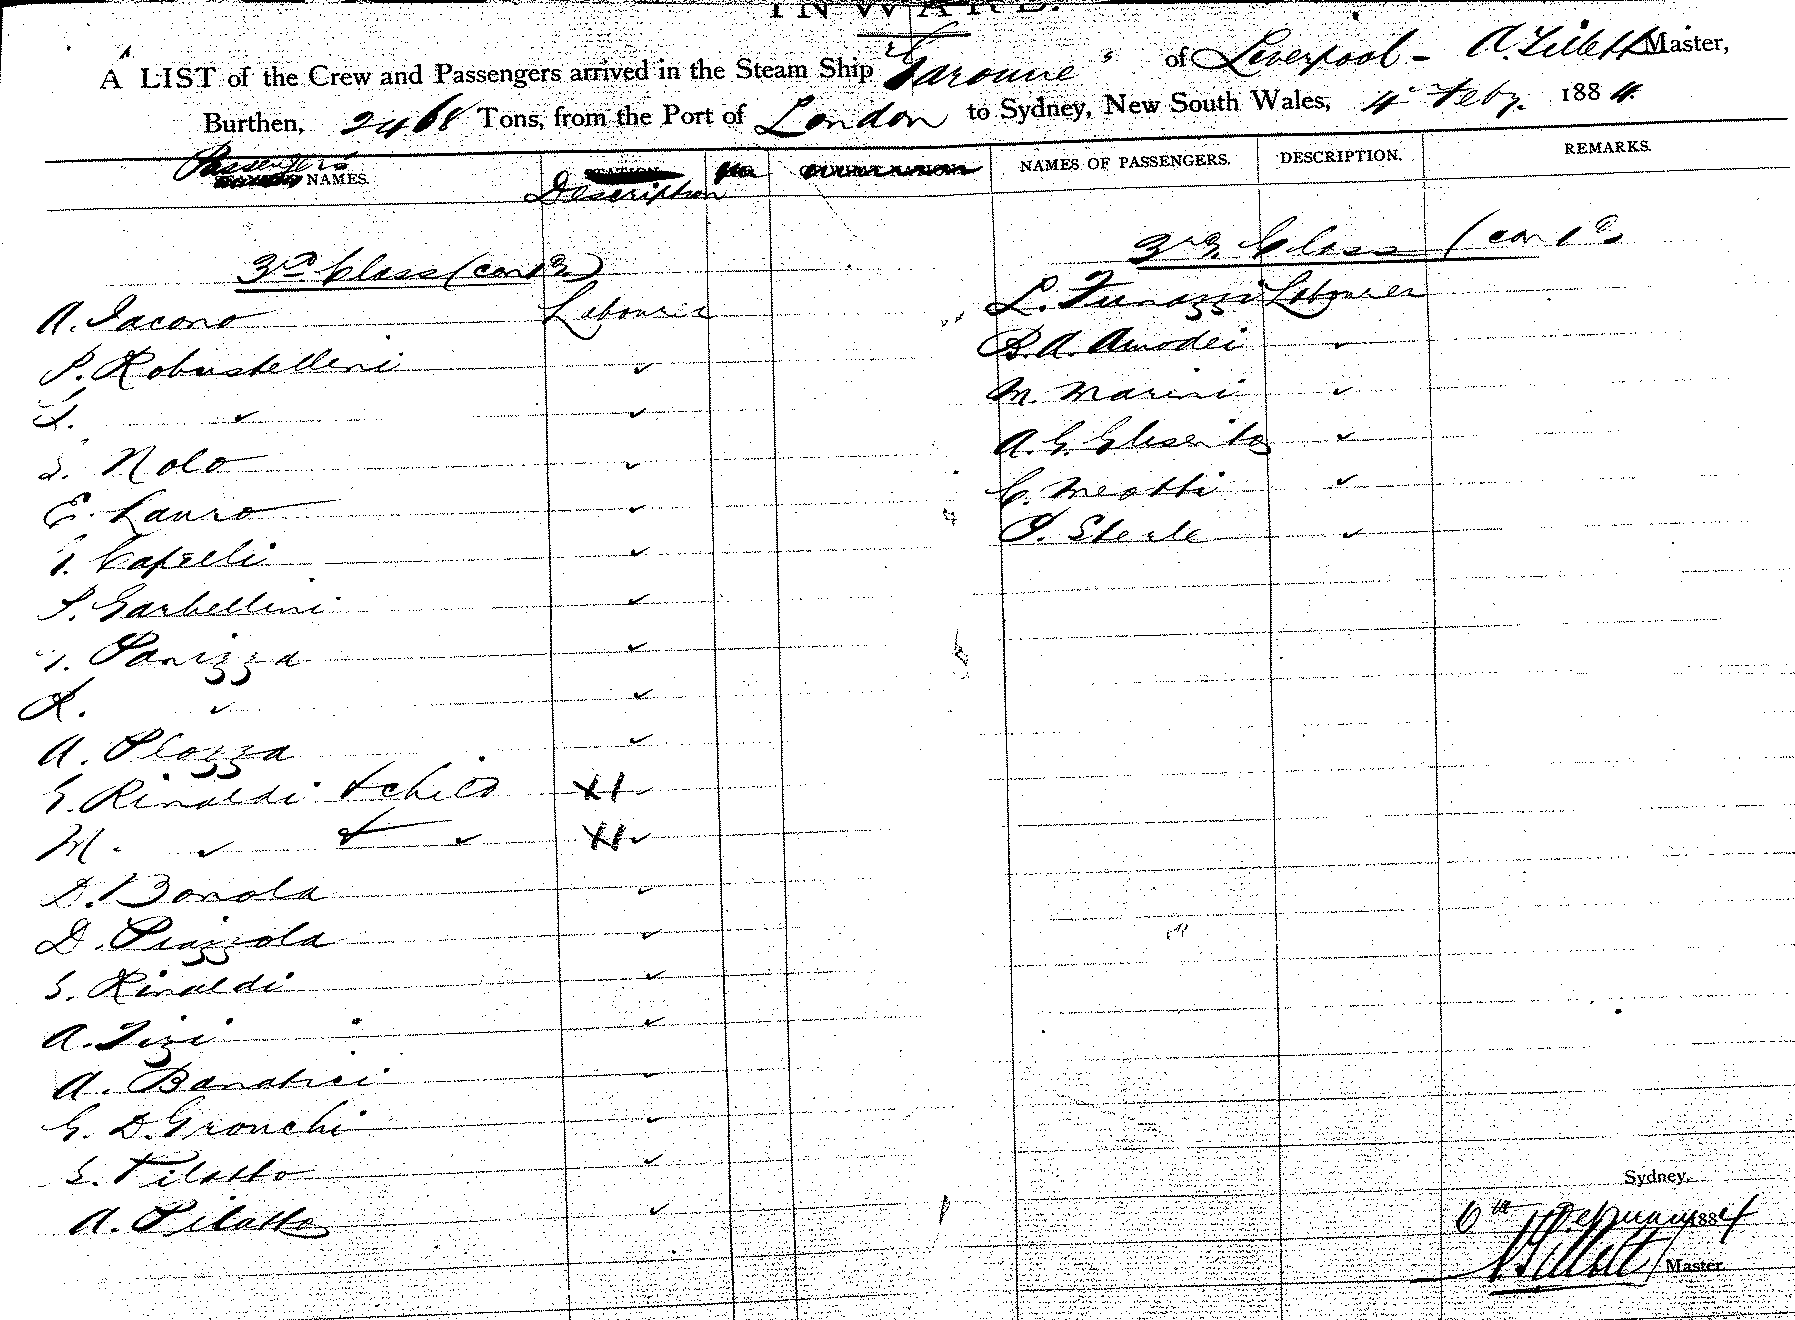 INWARD.
A LIST of the Crew and Passengers arrived in the Steam Ship "Garonne" of Liverpool - A. Tillett Master,
Burthen, 2468 Tons, from the Port of London to Sydney, New South Wales, 4 Feby. 1884
Passengers NAMES. Description
NAMES OF PASSENGERS. DESCRIPTION. REMARKS.
3rd Class (contd)
A. Iacono Labourer
P. Robustelleni ✓
✓ ✓
Nolo ✓
E. Lauro ✓
Capelli ✓
P. Garbellini ✓
Panizza ✓
✓ ✓
A. Plozza ✓
G. Rinaldi & child ✓
M. ✓ & ✓ ✓
D. Bonola ✓
D. Piazzola ✓
G. Rinaldi ✓
A. Tizi ✓
A. Banatici ✓
G. D. Gronchi ✓
Pilatto ✓
A. Pilatto ✓
3rd Class (contd)
L. Funazzi Labourer
B. A. Amodei ✓
M. Marini ✓
A. G. ✓
C. Meotti ✓
Sterle ✓
Sydney,
6th February 1884
A Tillett Master